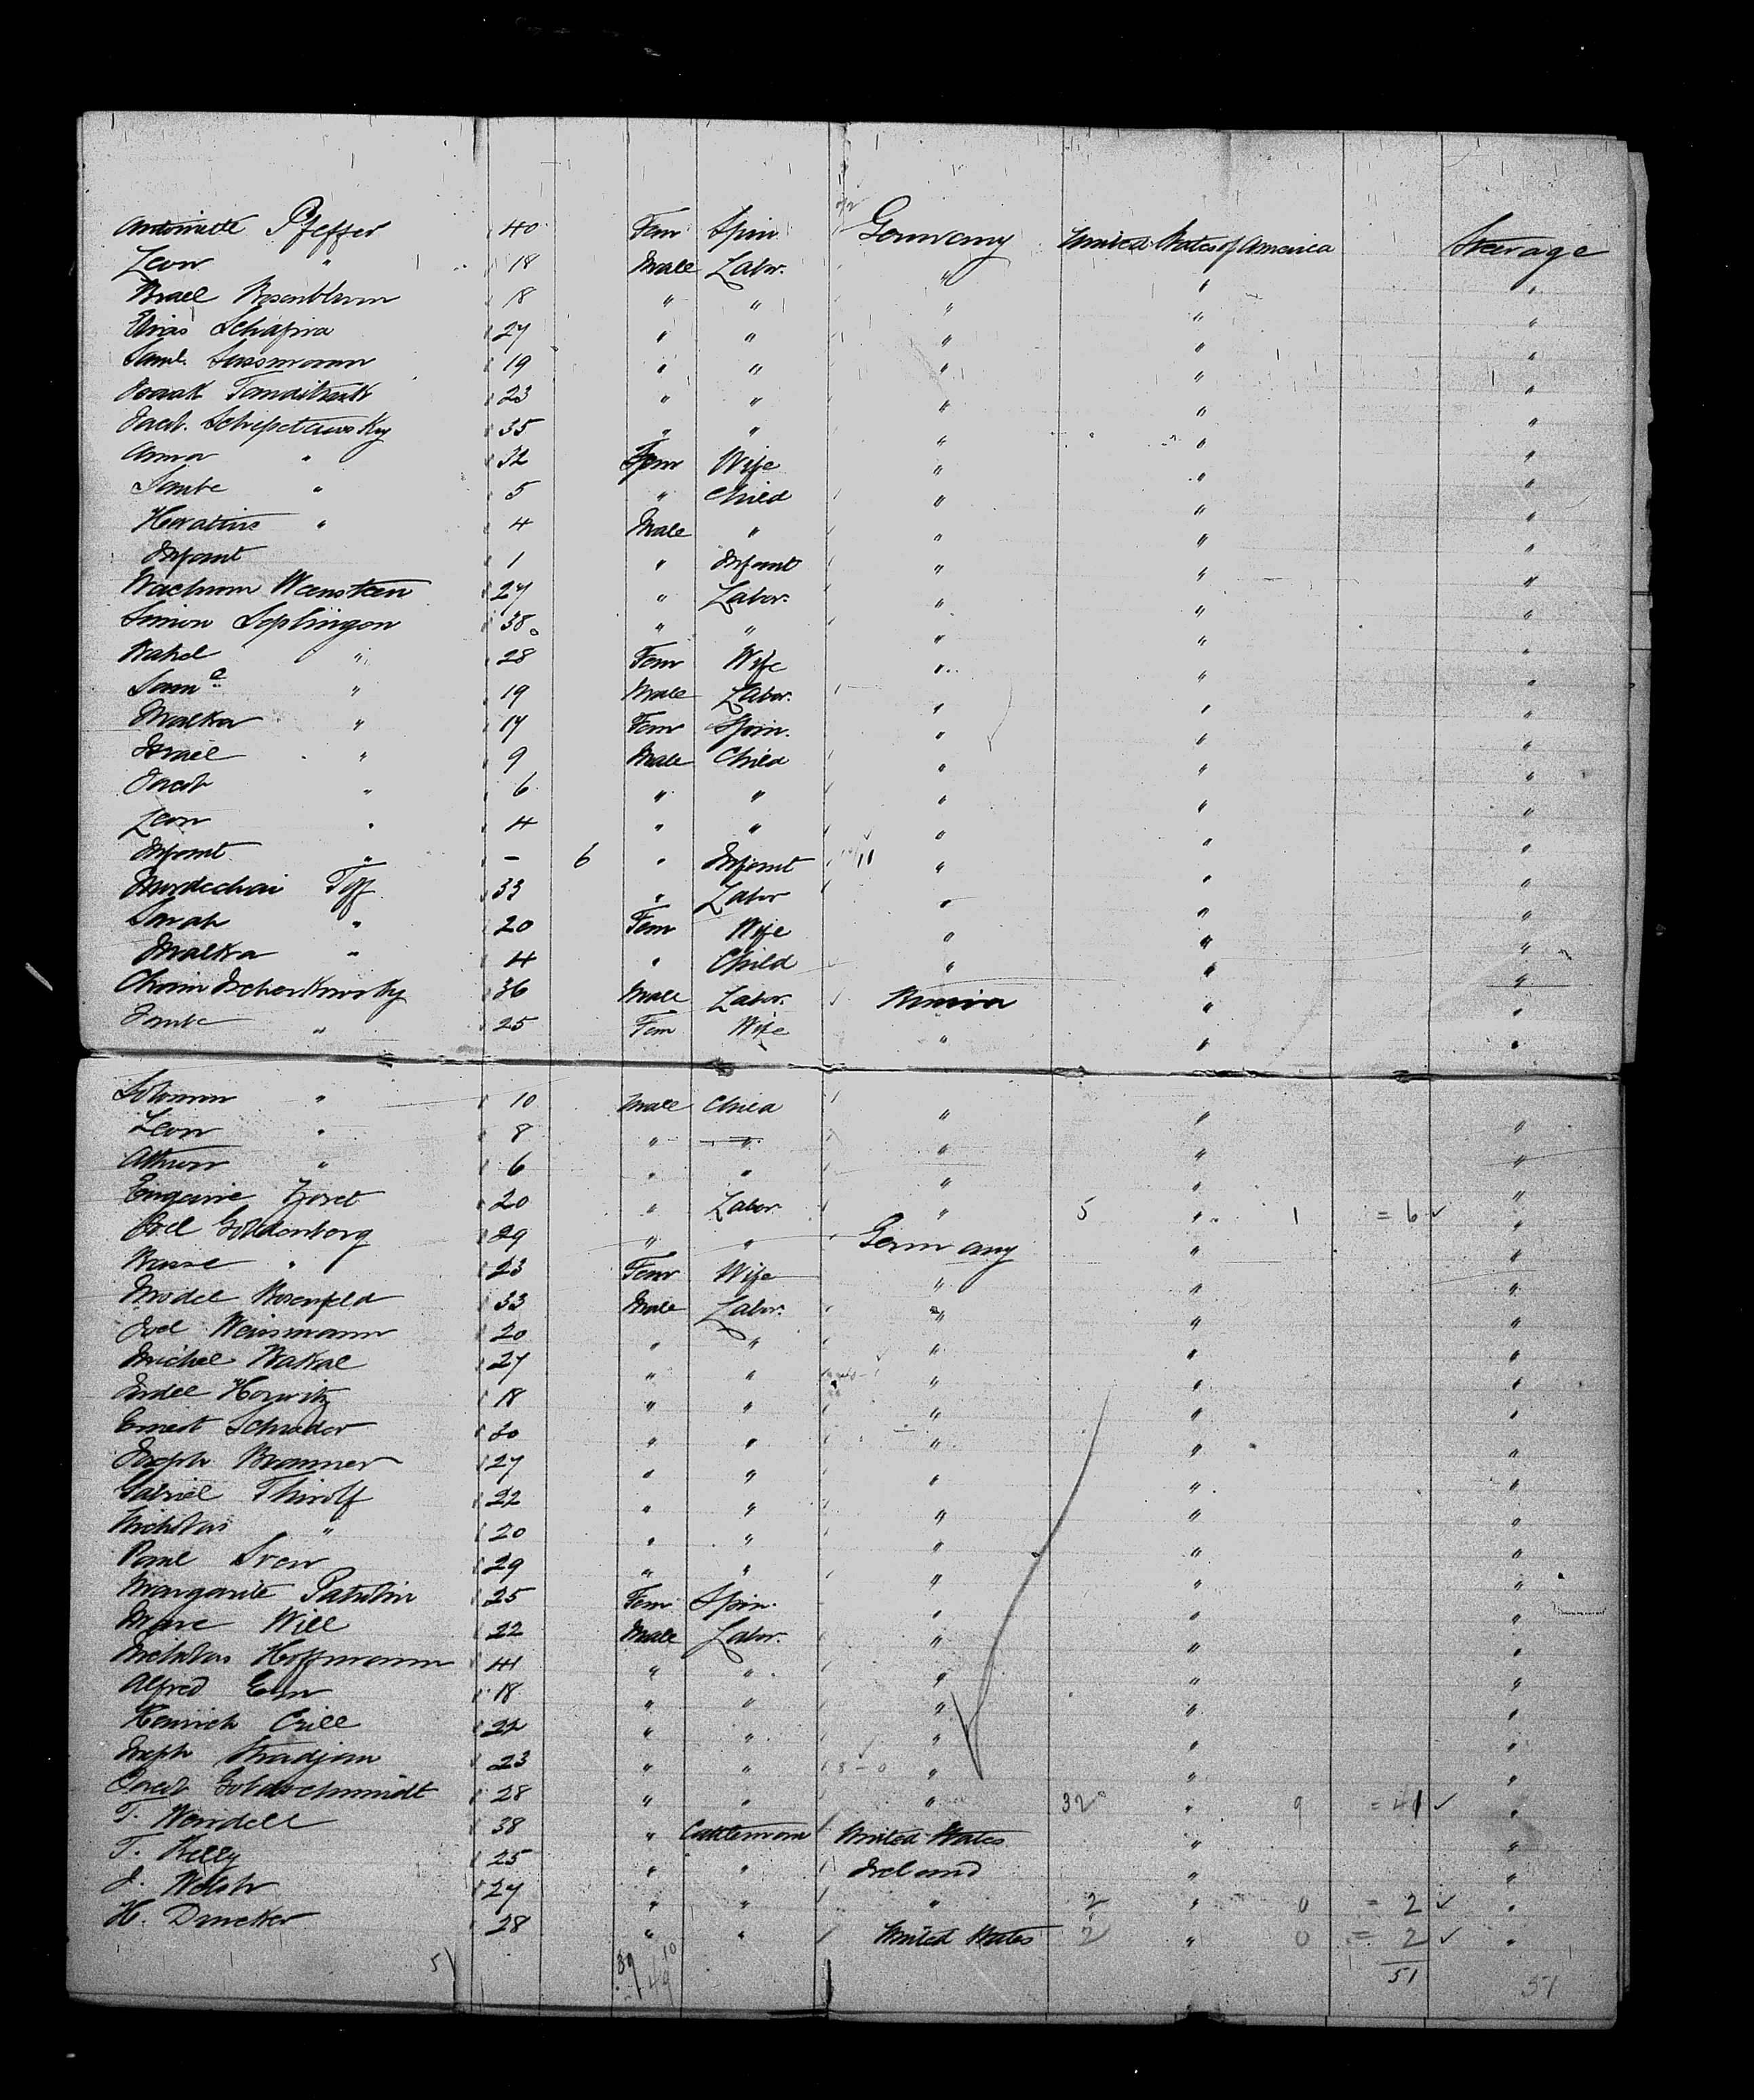 Antoinette Pfeffer 40 Fem Spin Germany United States of America Steerage
Leon " 18 Male Labor. " " "
Israel Rosenblum 18 " " " " "
Elias Schapira 27 " " " " "
Saml. Sassmann 19 " " " " "
Isaak 23 " " " " "
Jacob. Schepetawsky 35 " " " " "
Anna " 32 Fem Wife " " "
" 5 " Child " " "
" 4 Male " " " "
Infant 1 " Infant " " "
Nachum Weinstein 27 " Labor. " " "
Simon 38 " " " " "
Rahel " 28 Fem Wife " " "
Saml " 19 Male Labor. " " "
Malka " 17 Fem Spin. " " "
Israel " 9 Male Child " " "
Jacob " 6 " " " " "
Leon " 4 " " " " "
Infant " - 6 " Infant 11 " " "
Mordechai 33 " Labor " " "
Sarah " 20 Fem Wife " " "
Malka " 4 " Child " " "
Chaim 36 Male Labor. Russia " "
" 25 Fem Wife " " "
Solomon " 10 Male Child " " "
Leon " 8 " " " " "
" 6 " " " " "
20 " Labor " 5 " 1 = 6 ✓ "
Goldenberg 29 " " Germany " "
" 23 Fem Wife " " "
Model Rosenfeld 33 Male Labor. " " "
Joel Weissmann 20 " " " " "
Michel Wakal 27 " " " " "
Judel Horwitz 18 " " " " "
Ernest Schrader 30 " " " " "
Joseph Brammer 27 " " " " "
Gabriel Thirolf 22 " " " " "
Nicholas " 20 " " " " "
Paul 29 " " " " "
Margarite 25 Fem Spin. " " "
Marc Will 22 Male Labor. " " "
Nicholas Hoffmann 41 " " " " "
Alfred 18 " " " " "
Heinrich Crill 22 " " " " "
Joseph 23 " " 8-0 " " "
Goldschmidt 28 " " " 32 " 9 = 41 ✓ "
T. Wendell 38 " Cattleman United States " "
T. Kelly 25 " " Ireland " "
J. Welsh 27 " " " 2 " 0 = 2 ✓ "
H. Duncker 28 " " United States 2 " 0 = 2 ✓ "
51 39 10 49 51 51